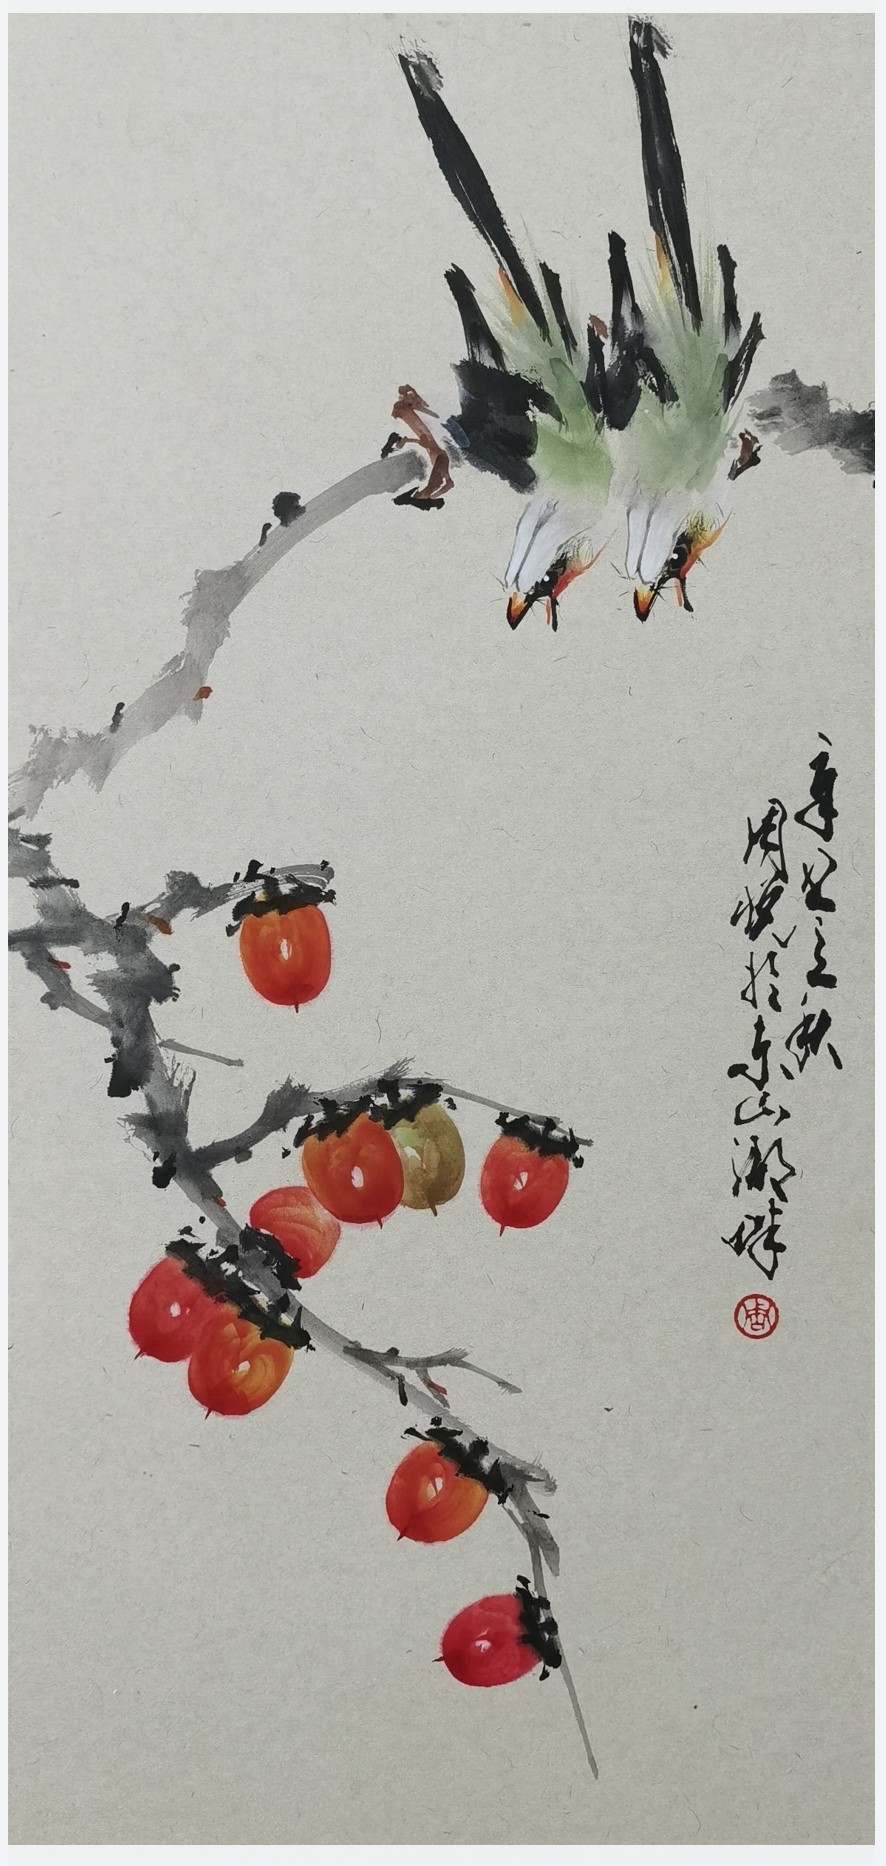 辛丑立秋
周悦於东山湖畔
周